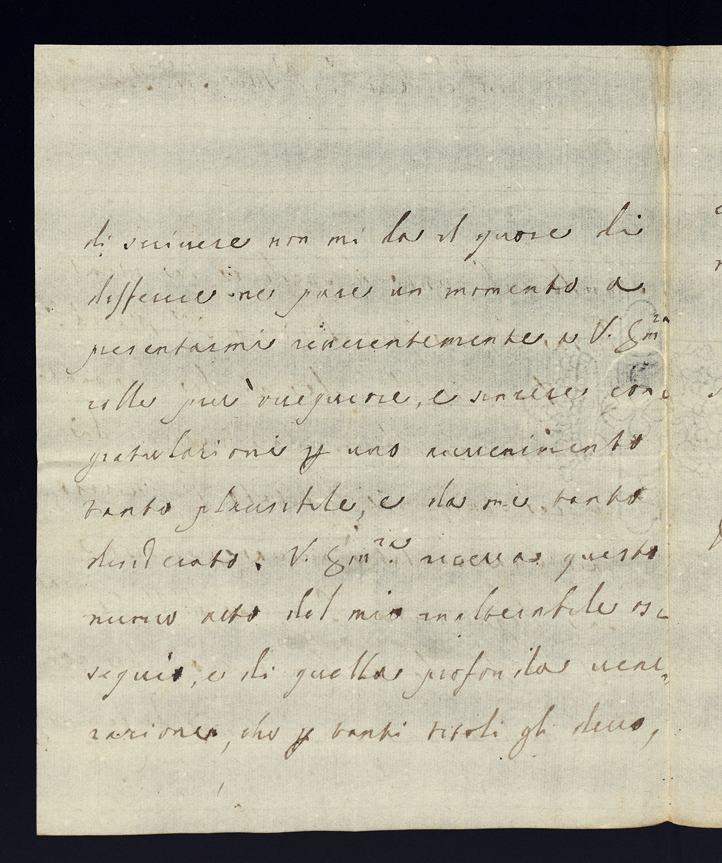 di scrivere non mi da il quore di
differire ne pure un momento a
presentarmi riverentemente a V. Em.za
colle più ossequiose, e sincere con=
gratulazioni p uno avvenimento
tanto plausibile, e da me tanto
desiderato. V. Em.za riceva questo
nuovo atto del mio inalterabile os=
sequio, e di quella profonda vene=
razione, che p tanti titoli gli devo,